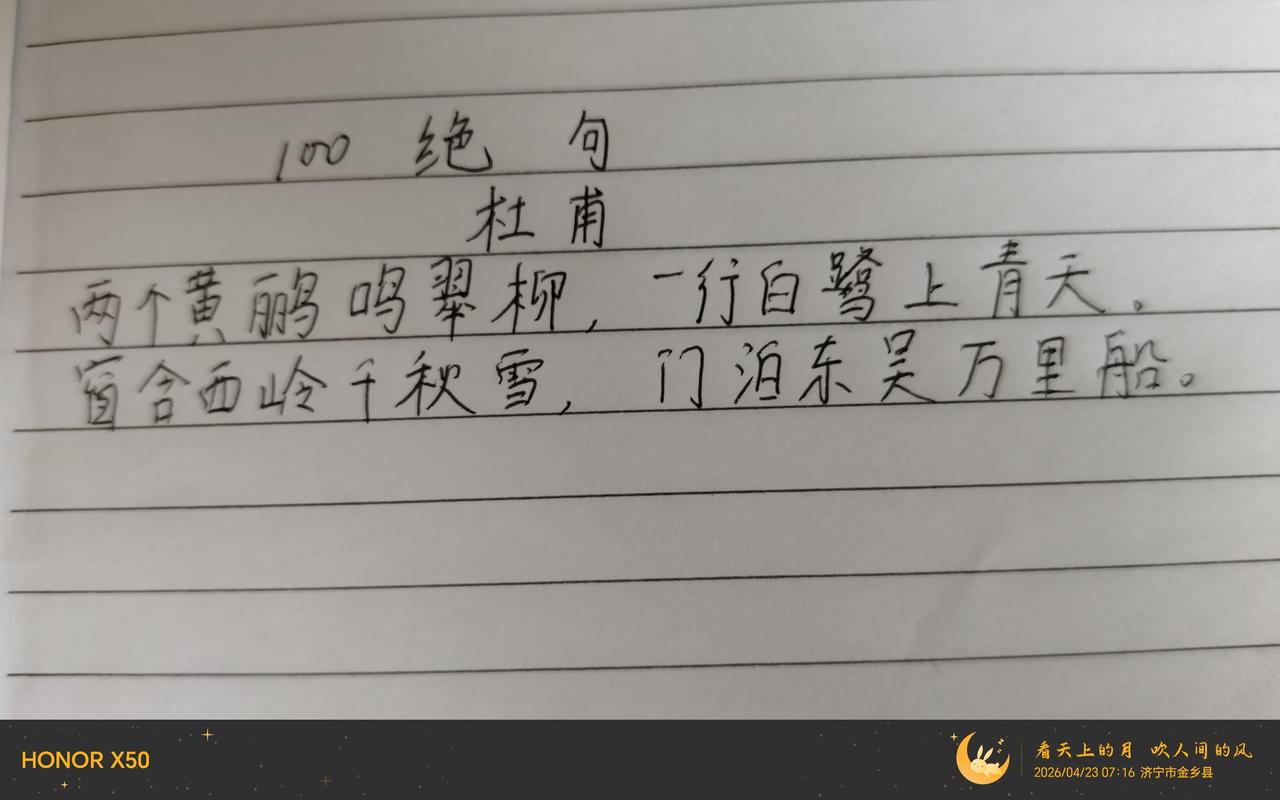 100 绝句
杜甫
两个黄鹂鸣翠柳，一行白鹭上青天。
窗含西岭千秋雪，门泊东吴万里船。
HONOR X50
看天上的月 吹人间的风
2026/04/23 07:16 济宁市金乡县